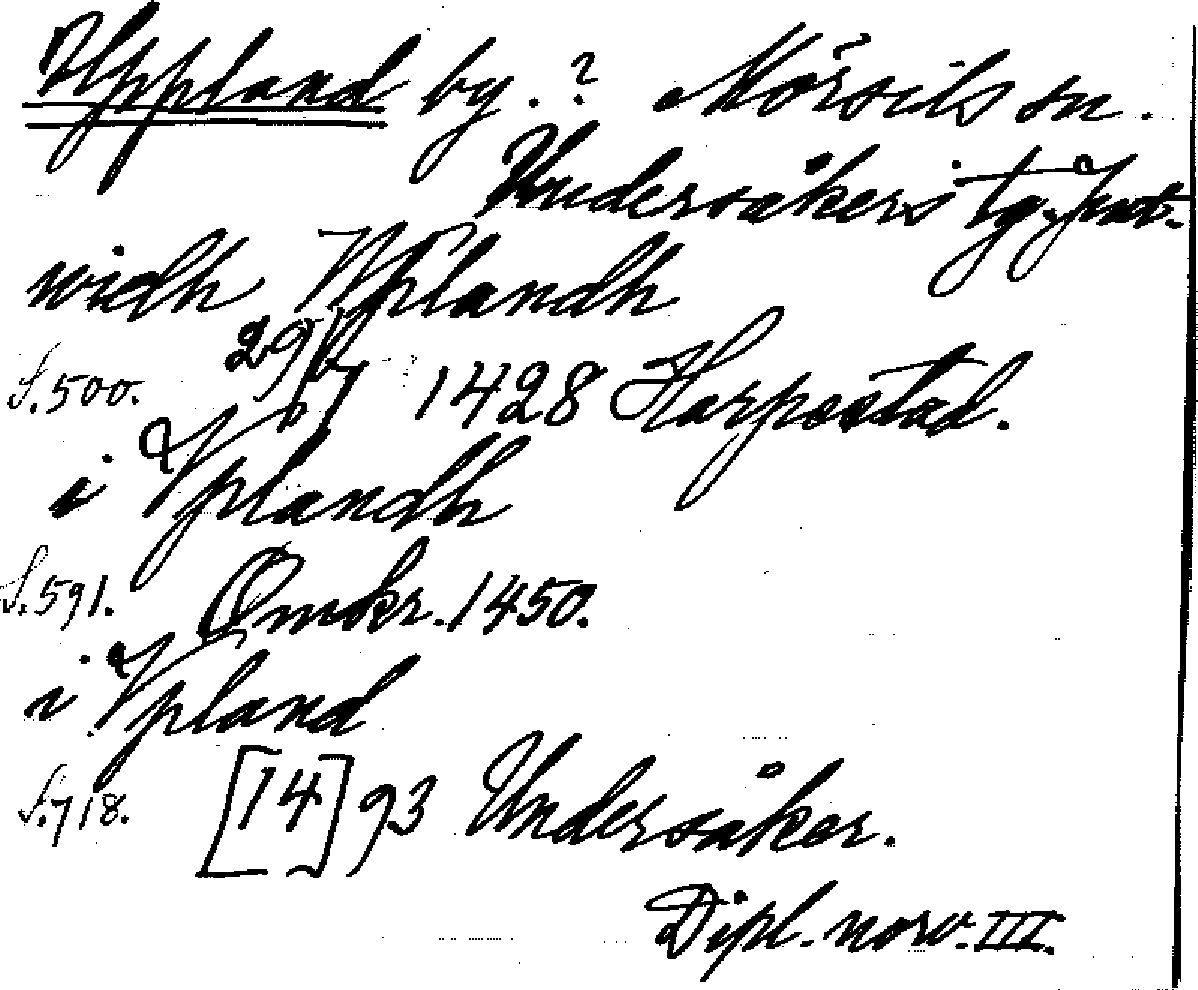 Uppland by. ? Mörsils sn.
Undersåkers tg. Jmt.
widh Vplandh
S.500. 29/7 1428 Harpostad.
i Vplandh
S.591. Omkr. 1450.
i Vpland
S.718. [14]93 Undersåker.
Dipl. norv. III.